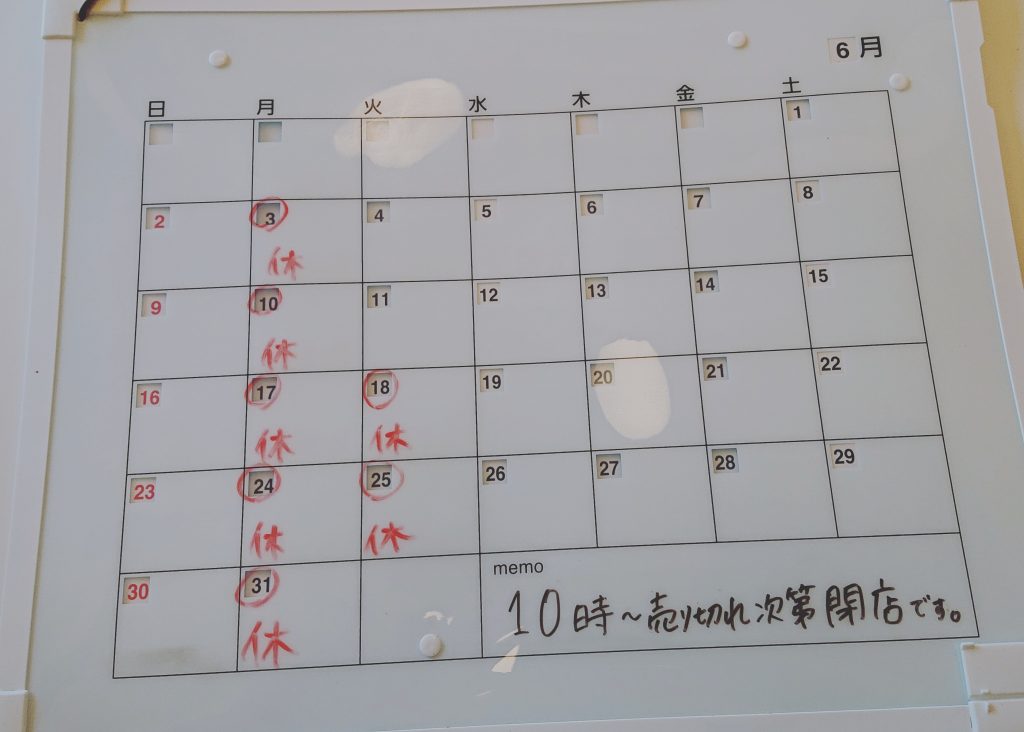 6月
日 月 火 水 木 金 土
1
2 3 4 5 6 7 8
休
9 10 11 12 13 14 15
休
16 17 18 19 20 21 22
休 休
23 24 25 26 27 28 29
休 休
30 31
休
memo
10時～売り切れ次第閉店です。